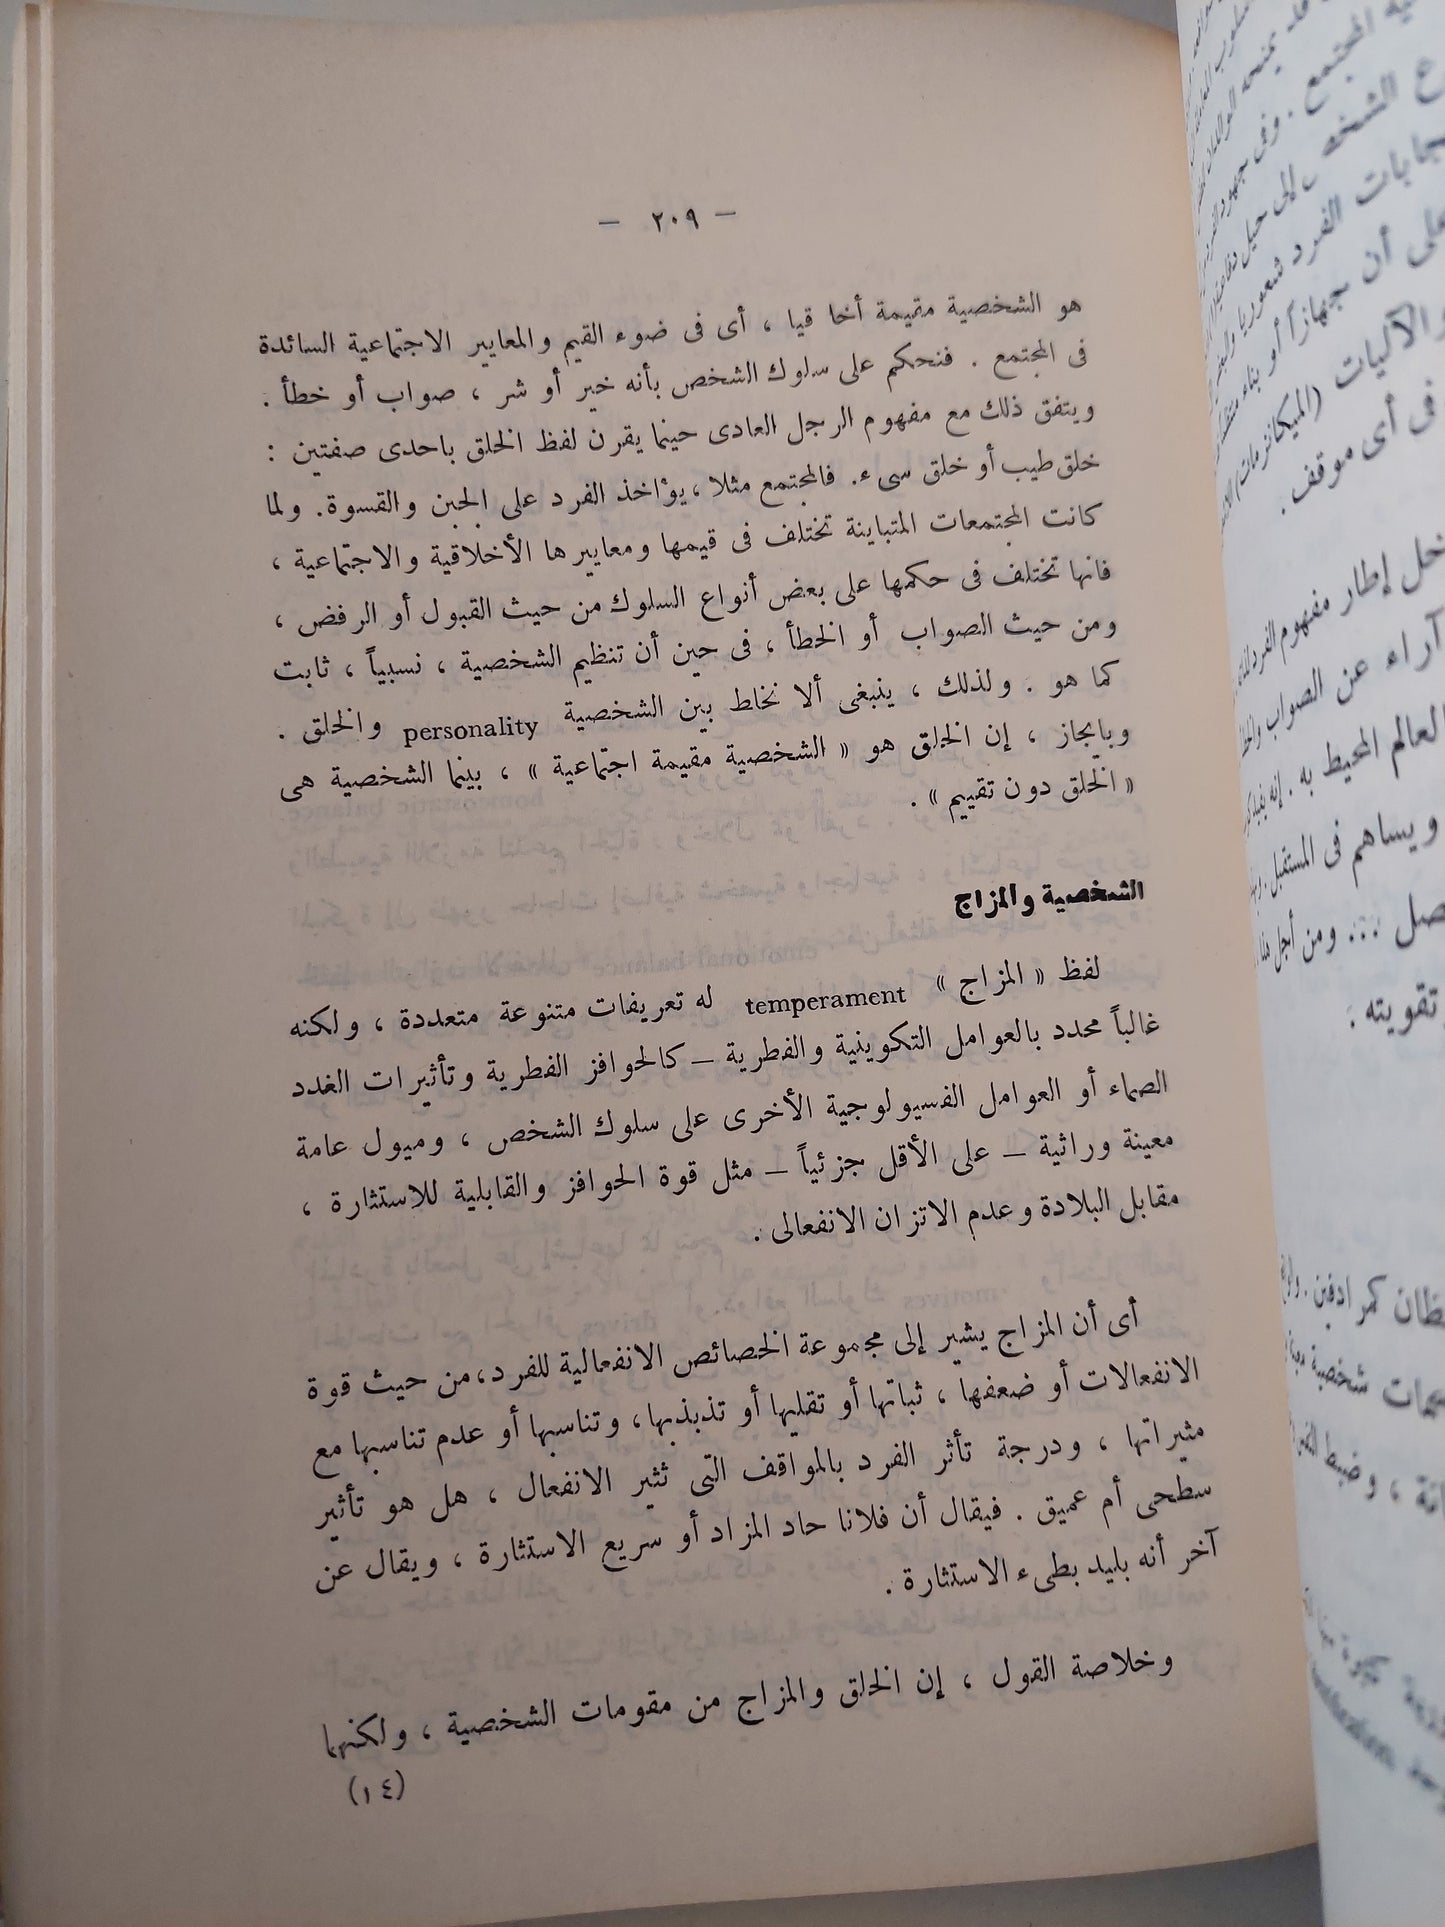 — ٢٠٩ —
هو الشخصية مقيمة أخا قيا ، أى فى ضوء القيم والمعايير الاجتماعية السائدة
فى المجتمع . فنحكم على سلوك الشخص بأنه خير أو شر ، صواب أو خطأ .
ويتفق ذلك مع مفهوم الرجل العادى حينما يقرن لفظ الخلق باحدى صفتين :
خلق طيب أو خلق سىء. فالمجتمع مثلا ، يؤاخذ الفرد على الجبن والقسوة. ولما
كانت المجتمعات المتباينة تختلف فى قيمها ومعاييرها الأخلاقية والاجتماعية ،
فانها تختلف فى حكمها على بعض أنواع السلوك من حيث القبول أو الرفض ،
ومن حيث الصواب أو الخطأ ، فى حين أن تنظيم الشخصية ، نسبياً ، ثابت
كما هو . ولذلك ، ينبغى ألا نخاط بين الشخصية personality والخلق .
وبايجاز ، إن الخلق هو « الشخصية مقيمة اجتماعية » ، بينما الشخصية هى
« الخلق دون تقييم » .
الشخصية والمزاج
لفظ « المزاج » temperament له تعريفات متنوعة متعددة ، ولكنه
غالباً محدد بالعوامل التكوينية والفطرية – كالحوافز الفطرية وتأثيرات الغدد
الصماء أو العوامل الفسيولوجية الأخرى على سلوك الشخص ، وميول عامة
معينة وراثية – على الأقل جزئياً – مثل قوة الحوافز والقابلية للاستثارة ،
مقابل البلادة وعدم الاتزان الانفعالى .
أى أن المزاج يشير إلى مجموعة الخصائص الانفعالية للفرد، من حيث قوة
الانفعالات أو ضعفها ، ثباتها أو تقلبها أو تذبذبها، وتناسبها أو عدم تناسبها مع
مثيراتها ، ودرجة تأثر الفرد بالمواقف التى تثير الانفعال ، هل هو تأثير
سطحى أم عميق . فيقال أن فلانا حاد المزاد أو سريع الاستثارة ، ويقال عن
آخر أنه بليد بطىء الاستثارة .
وخلاصة القول ، إن الخلق والمزاج من مقومات الشخصية ، ولكنهما
(١٤)
المجتمع . وفى
إلى حيل
الفرد شعوريا
على أن جهازاً أو بناء
والآليات (الميكانزمات)
فى أى موقف .
إطار مفهوم الفرد
آراء عن الصواب
العالم المحيط به . إنه
ويساهم فى المستقبل .
ومن أجل هذا
تقويته .
كمرادفين .
شخصية
، وضبط